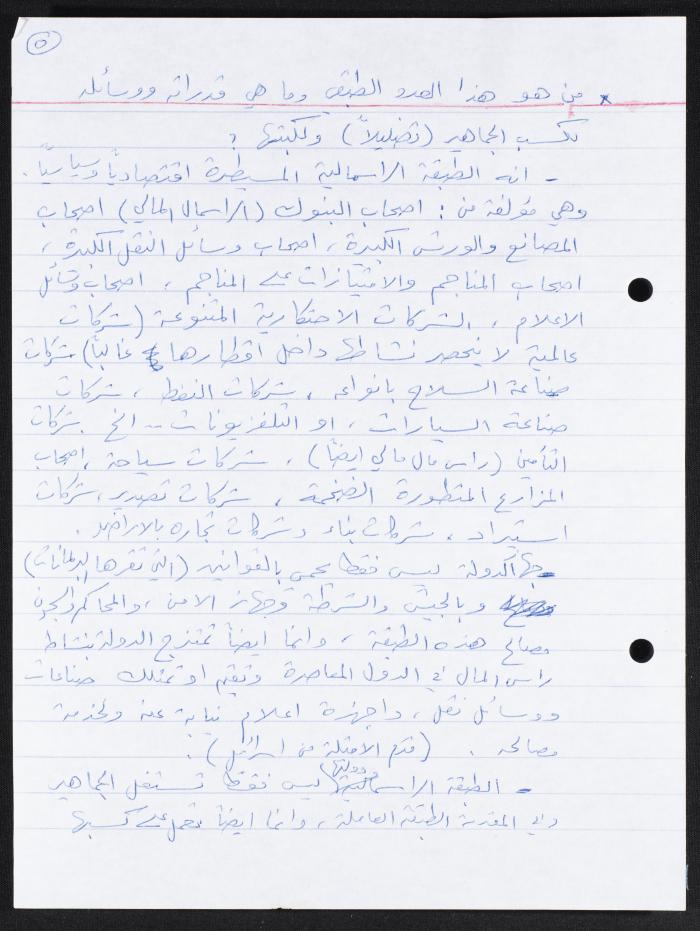 ٥
× من هو هذا العدو الطبقي وما هي قدراته ووسائله
لكسب الجماهير (تضليلاً) ولكبتها ؟
- انه الطبقة الراسمالية المسيطرة اقتصادياً وسياسياً.
وهي مؤلفة من : اصحاب البنوك (الراسمال المالي) اصحاب
المصانع والورش الكبيرة ، اصحاب وسائل النقل الكبيرة ،
اصحاب المناجم والامتيازات على المناجم ، اصحاب وسائل
الاعلام ، الشركات الاحتكارية المتنوعة (شركات
عالمية لا ينحصر نشاطها داخل اقطارها غالباً) شركات
صناعة السلاح بانواعه ، شركات النفط ، شركات
صناعة السيارات ، او التلفزيونات .. الخ شركات
التأمين (راس مال مالي ايضاً) ، شركات سياحة ، اصحاب
المزارع المتطورة الضخمة ، شركات تصدير ، شركات
استيراد ، شركات بناء وشركات تجاره بالاراضي .
- جهاز الدولة ليس فقط يحمي بالقوانين (التي تقرها البرلمانات)
وبالجيش والشرطة وجهاز الامن ، والمحاكم والسجون
مصالح هذه الطبقة ، وانما ايضاً تمتزج الدولة بنشاط
راس المال في الدول المعاصرة وتقيم او تمتلك صناعات
ووسائل نقل ، واجهزة اعلام نيابة عنه ولخدمة
مصالحه . (قدم الامثلة من اسرائيل) .
- الطبقة الراسمالية (ودولتها) ليس فقط تستغل الجماهير
وفي المقدمة الطبقة العاملة ، وانما ايضاً تعمل على كسبها